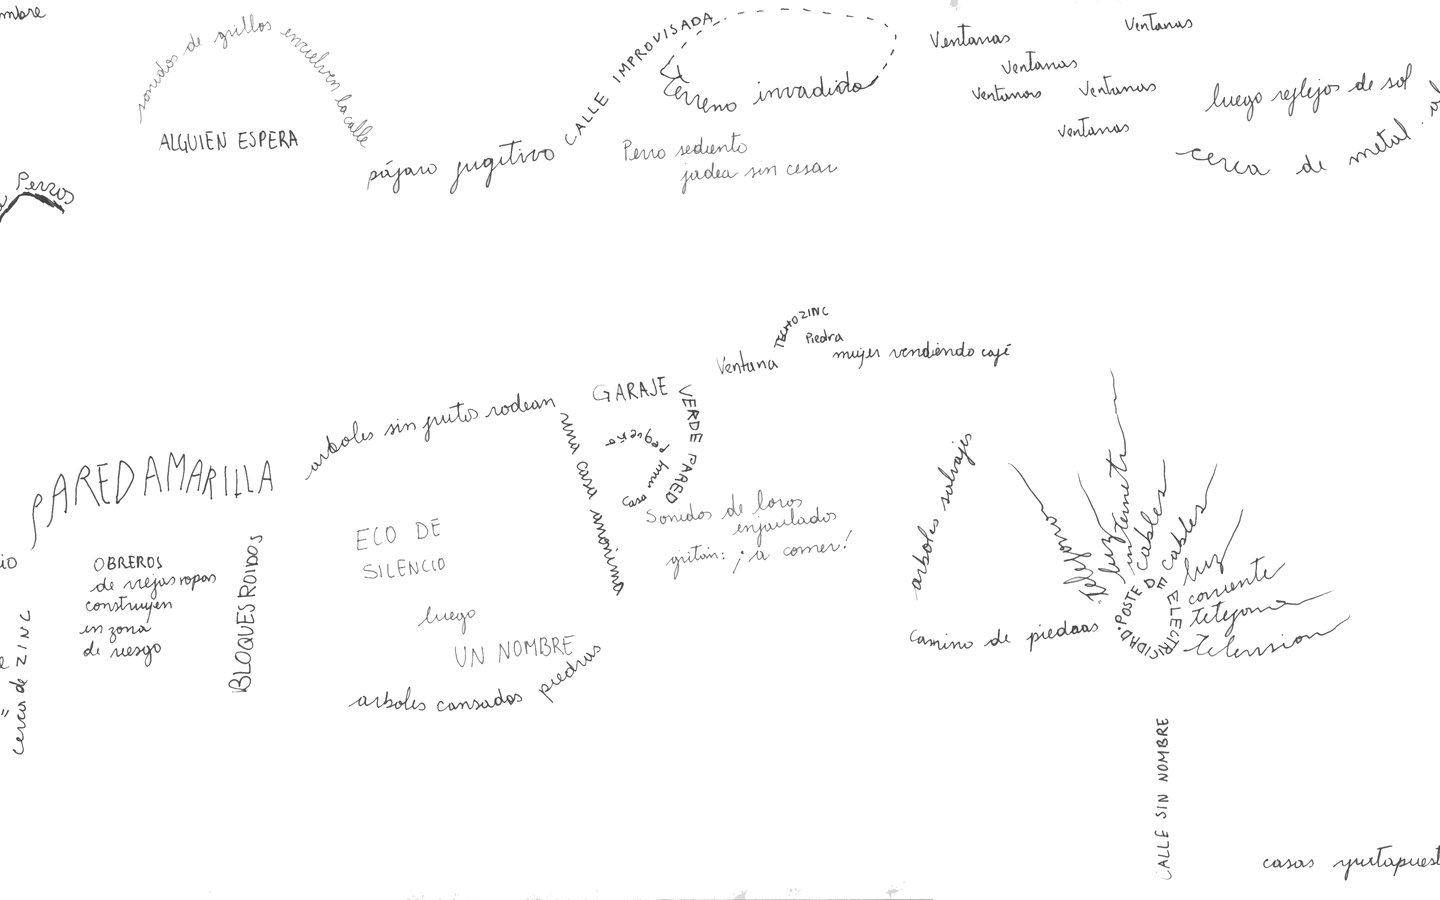 sonidos de grillos envuelven la calle
ALGUIEN ESPERA
Perros
pájaro fugitivo
CALLE IMPROVISADA
terreno invadido
Perro sediento
jadea sin cesar
Ventanas
Ventanas
Ventanas
Ventanas
Ventanas
Ventanas
luego reflejos de sol
cerca de metal
PARED AMARILLA
OBREROS
de viejas ropas
construyen
en zona
de riesgo
BLOQUES ROIDOS
cerca de ZINC
arboles sin frutos rodean
una casa anónima
ECO DE
SILENCIO
luego
UN NOMBRE
arboles cansados
piedras
GARAJE
VERDE PARED
casa muy pequeña
Sonidos de loros
enjaulados
gritan: ¡a comer!
Ventana
TECHO ZINC
Piedra
mujer vendiendo café
arboles salvajes
camino de piedras
POSTE DE ELECTRICIDAD
telefono
luz
internet
cables
cables
luz
corriente
telefono
television
CALLE SIN NOMBRE
casas